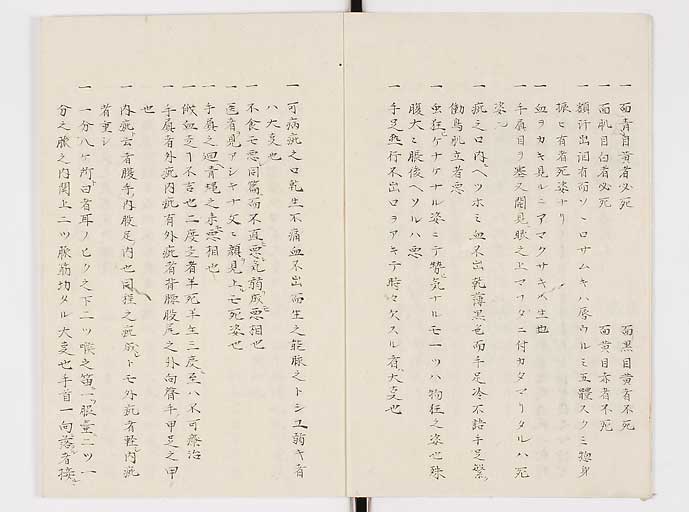 一 面青目黄者必死 面黒目黄者不死
一 面肌目白者必死 面黄目赤者不死
一 額汗出泪有而ソヽロサムキハ唇ウルミ五體スクミ惣身
振ヒ有者死姿ナリ
一 血ヲカキ見ルニアマクサキハ生也
一 手屓目ヲ塞又開見眼之上マフタニ付カタマリタルハ死
姿也
一 疵之口内ヘツホミ血不出乾薄黒色而手足冷不諾手足繁
働鳥肌立者悪
一 虫狂ケナケナル姿ニテ勢荒ナルモ一ツハ物狂之姿也殊
腹大ニ脹後ヘソルハ悪
一 手足無行不出口ヲアキテ時々欠スル者大支也
一 可病疵之口乾生不痛血不出而生之能脉之トシユ弱キ者
ハ大支也
一 不食モ悪同篇而不直悪気弱成悪相也
一 医者見アシキナ文ニ顔見上モ死姿也
一 手屓之廻青蝿之来悪相也
一 傚血走リ不吉也二度走者半死半生三度至ハ不可療治
一 手屓者外疵内疵有外疵者背腰股尾之外向臂手甲足之甲
也
一 内疵云者股手内股足内也同程之疵成トモ外疵者軽内疵
者重シ
一 一分ハケ所曰者耳ノヒク之下二ツ喉之笛一眼童二ツ一
分之脉之内関上二ツ腋筋切タル大支也手首一向落者接